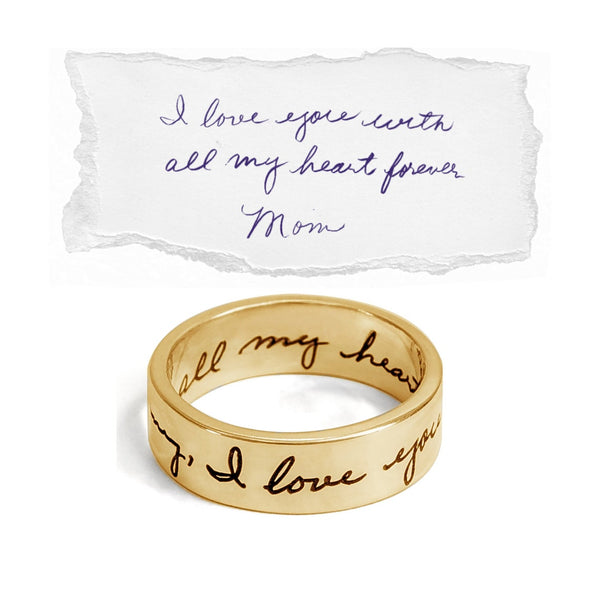 I love you with
all my heart forever
Mom
all my heart
my, I love you